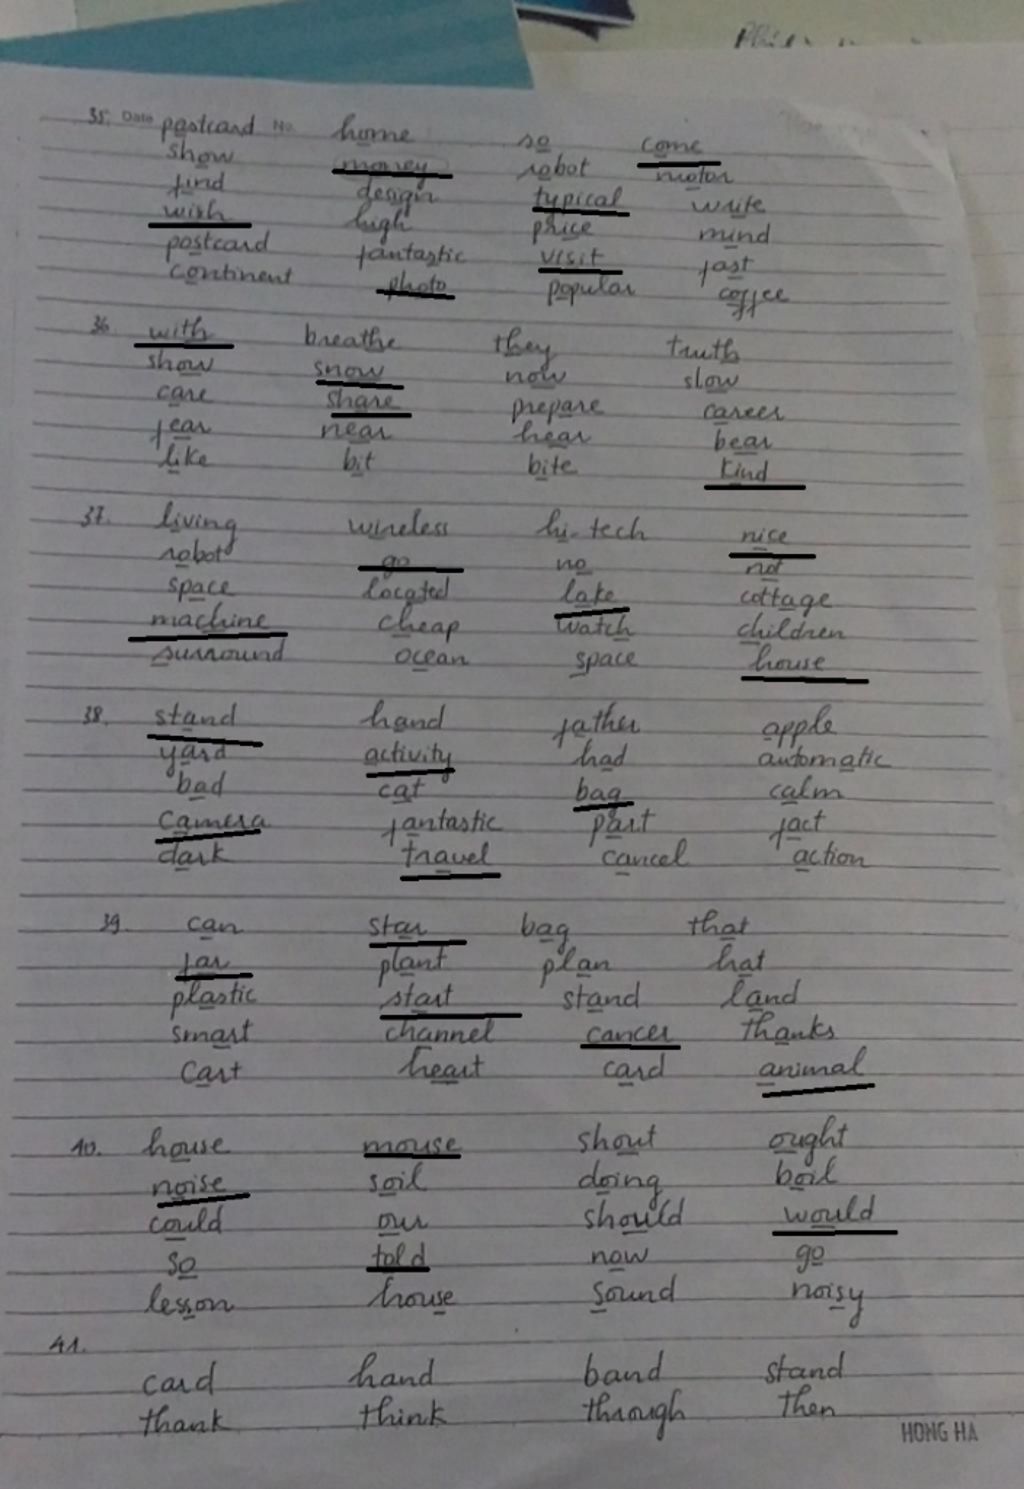 35. Date postcard No. home so come
show money robot motor
find design typical write
wish high price mind
postcard fantastic visit fast
continent photo popular coffee
36 with breathe they truth
show snow now slow
care share prepare career
fear near hear bear
like bit bite kind
37. living wireless hi-tech nice
robot go no not
space located lake cottage
machine cheap watch children
surround ocean space house
38. stand hand father apple
yard activity had automatic
bad cat bag calm
camera fantastic part fact
dark travel cancel action
39. can star bag that
far plant plan hat
plastic start stand land
smart channel cancer thanks
cart heart card animal
40. house mouse shout ought
noise soil doing boil
could our should would
so told now go
lesson house sound noisy
41.
card hand band stand
thank think through then
HONG HA